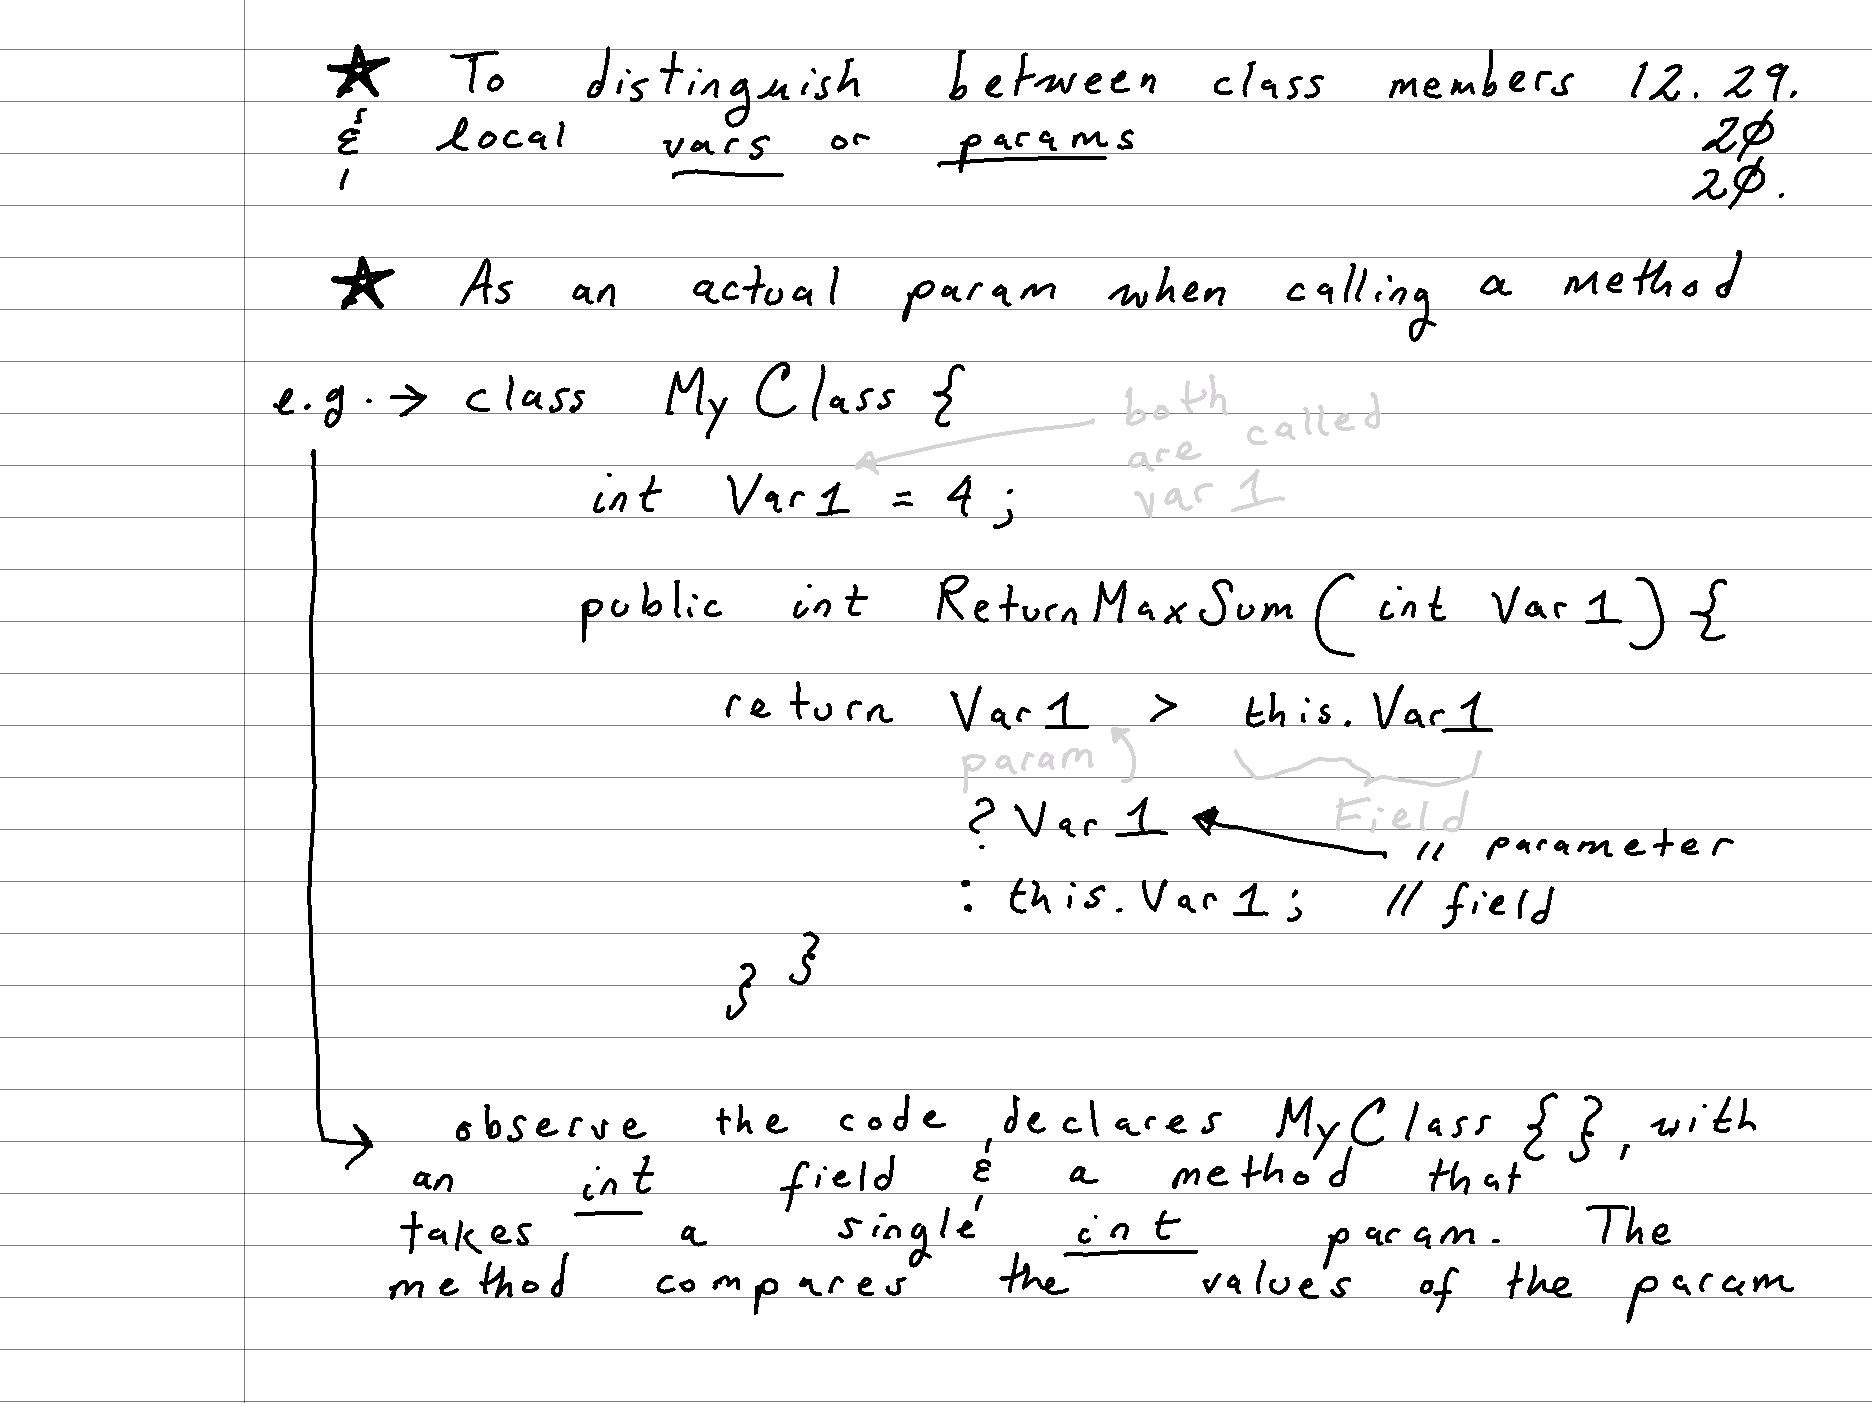 ★ To distinguish between class members 12.29.
& local vars or params 2∅
2∅.
★ As an actual param when calling a method
e.g. → class MyClass {
both
are called
var 1
int Var1 = 4 ;
public int ReturnMaxSum ( int Var1 ) {
return Var1 > this.Var1
param
Field
? Var1
// parameter
: this.Var1; // field
}
}
observe the code declares MyClass { }, with
an int field & a method that
takes a single int param. The
method compares the values of the param